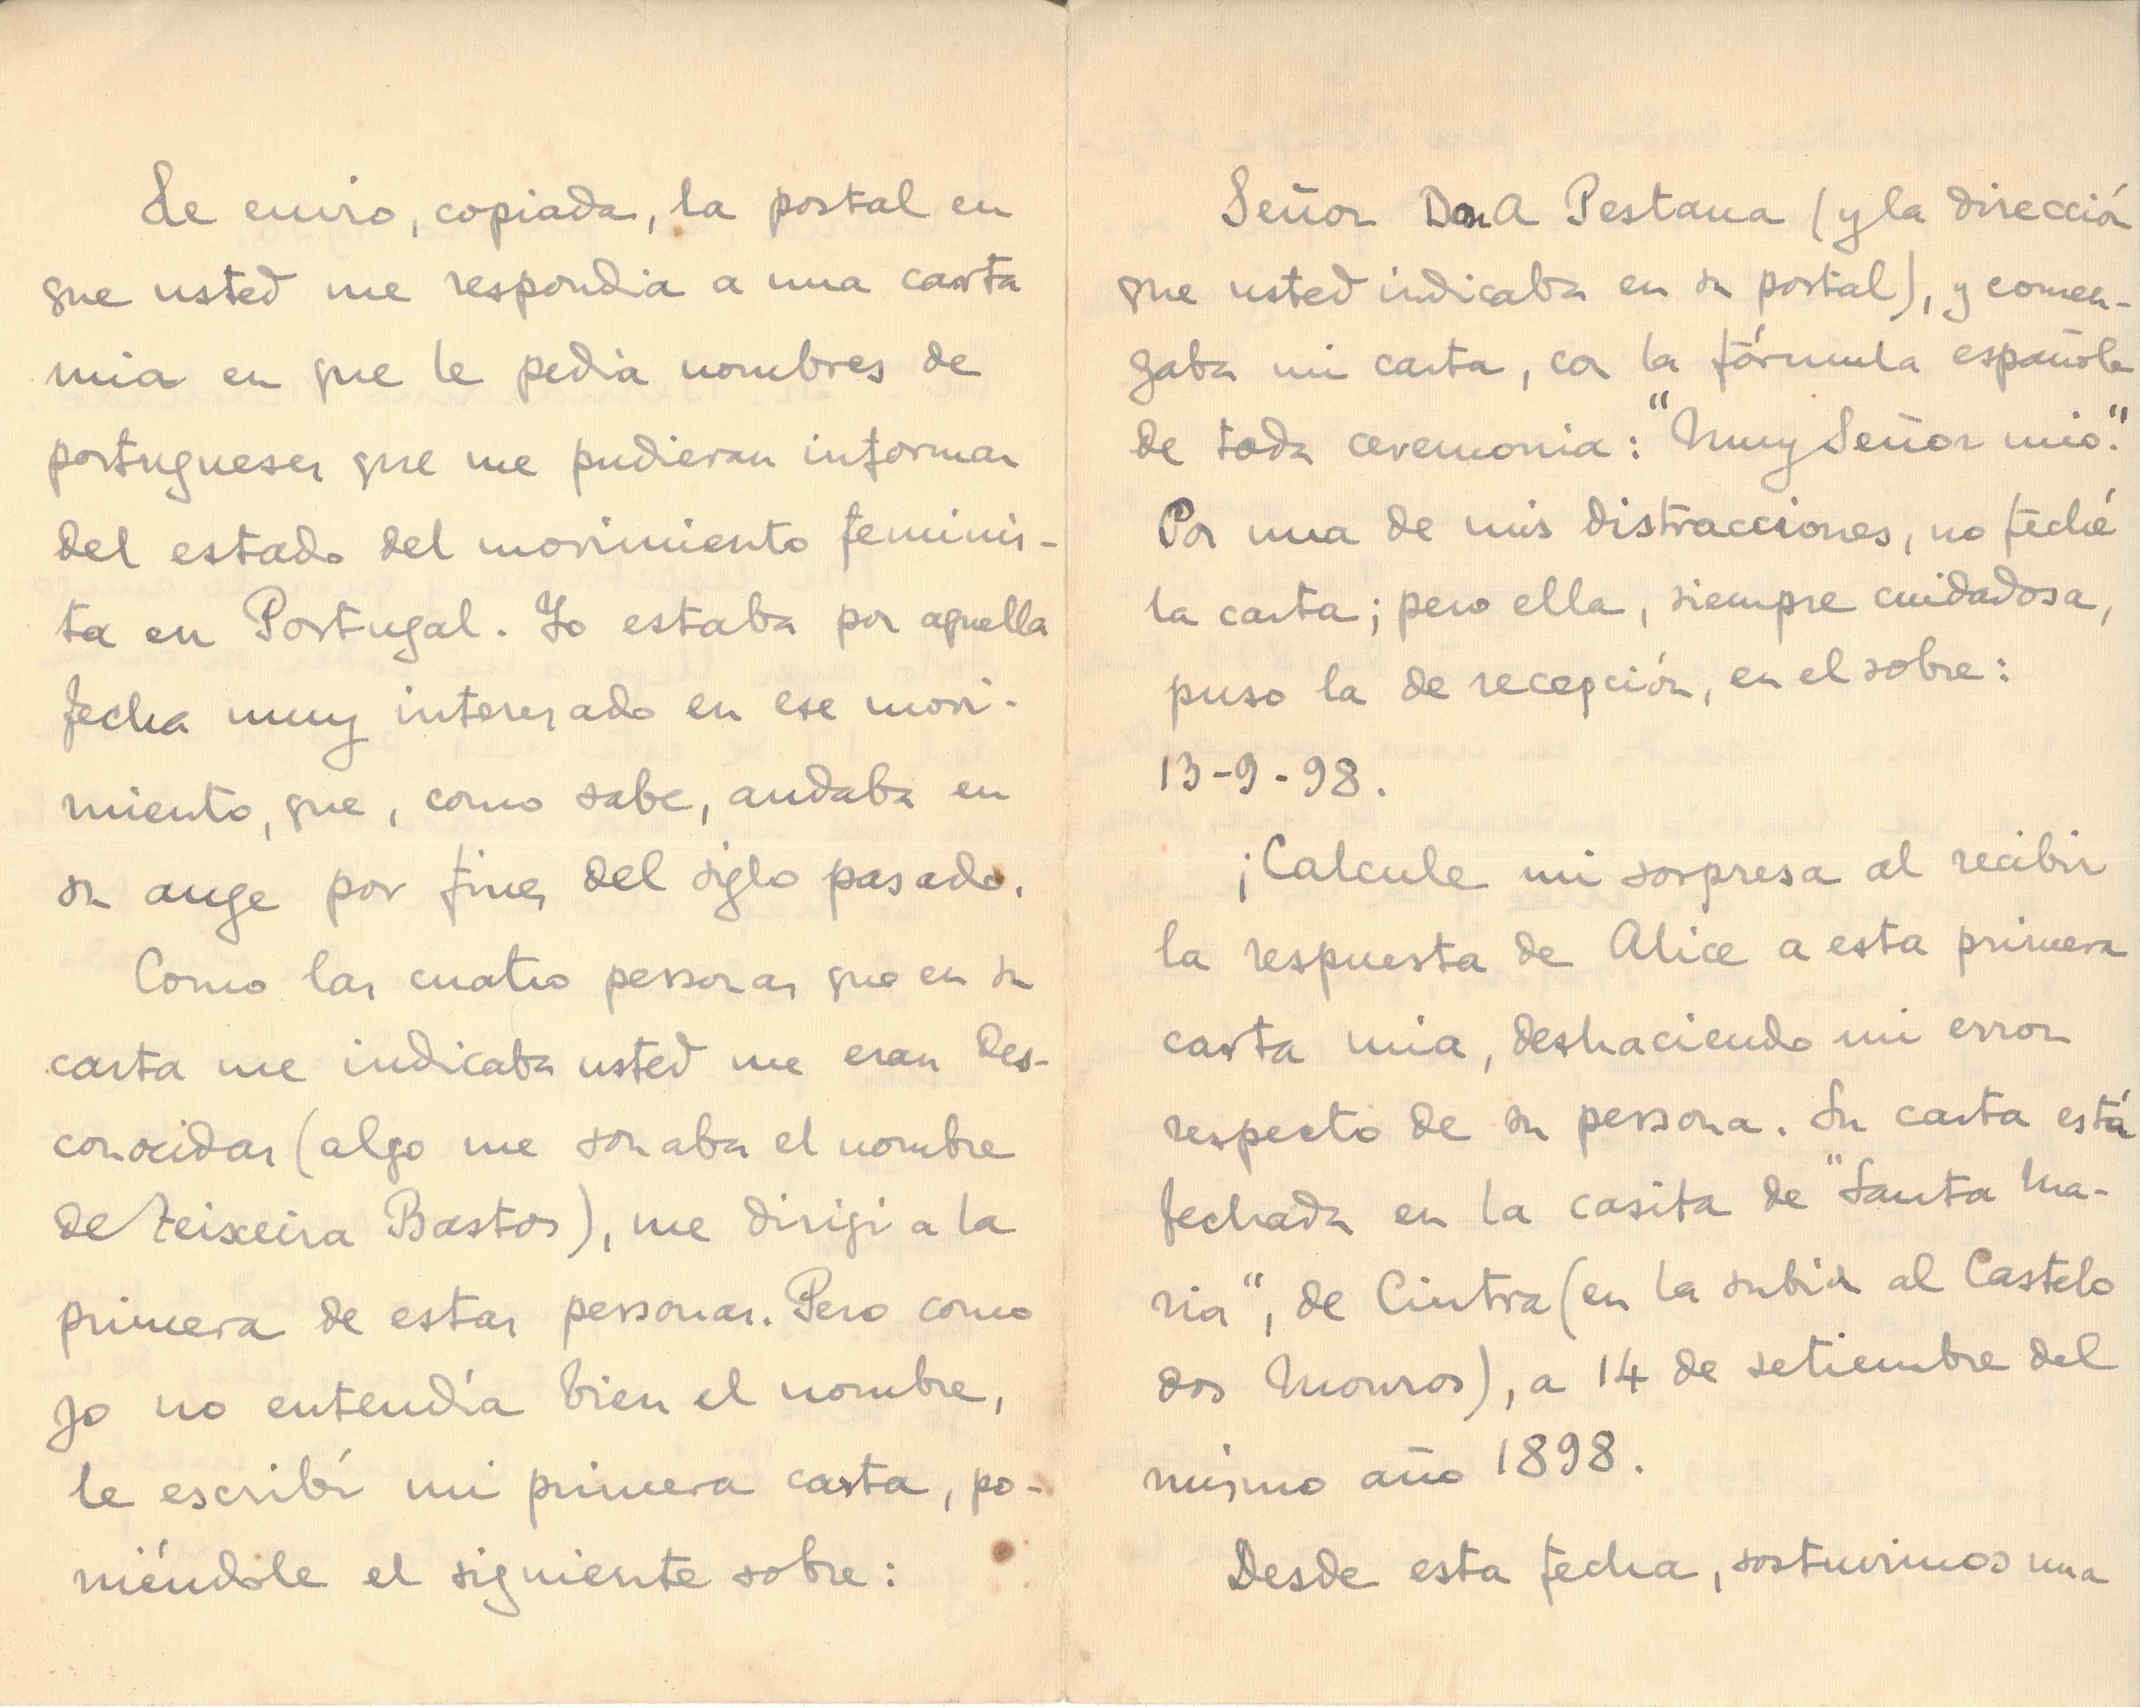 Le envio, copiada, la postal en
que usted me respondia a una carta
mia en que le pedia nombres de
portugueses que me pudieran informar
del estado del movimiento feminis-
ta en Portugal. Yo estaba por aquella
fecha muy interesado en ese movi-
miento, que, como sabe, andaba en
su auge por fines del siglo pasado.
Como las cuatro personas que en su
carta me indicaba usted me eran des-
conocidas (algo me sonaba el nombre
de Teixeira Bastos), me dirigi a la
primera de estas personas. Pero como
yo no entendía bien el nombre,
le escribí mi primera carta, po-
niéndole el siguiente sobre:
Señor Don A Pestana (y la dirección
que usted indicaba en su postal), y comen-
zaba mi carta, con la fórmula española
de toda ceremonia: "Muy Señor mio".
Por una de mis distracciones, no feché
la carta; pero ella, siempre cuidadosa,
puso la de recepción, en el sobre:
13-9-98.
¡Calcule mi sorpresa al recibir
la respuesta de Alice a esta primera
carta mia, deshaciendo mi error
respecto de su persona. Su carta está
fechada en la casita de "Santa Ma-
ria", de Cintra (en la subida al Castelo
dos Mouros), a 14 de setiembre del
mismo año 1898.
Desde esta fecha, sostuvimos una